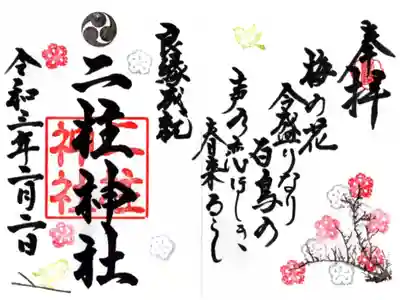 奉拝
梅の花
今盛りなり
百鳥の
声の恋ほしき
春来るらし
良縁
二柱神社
二柱神社
令和三年二月二日